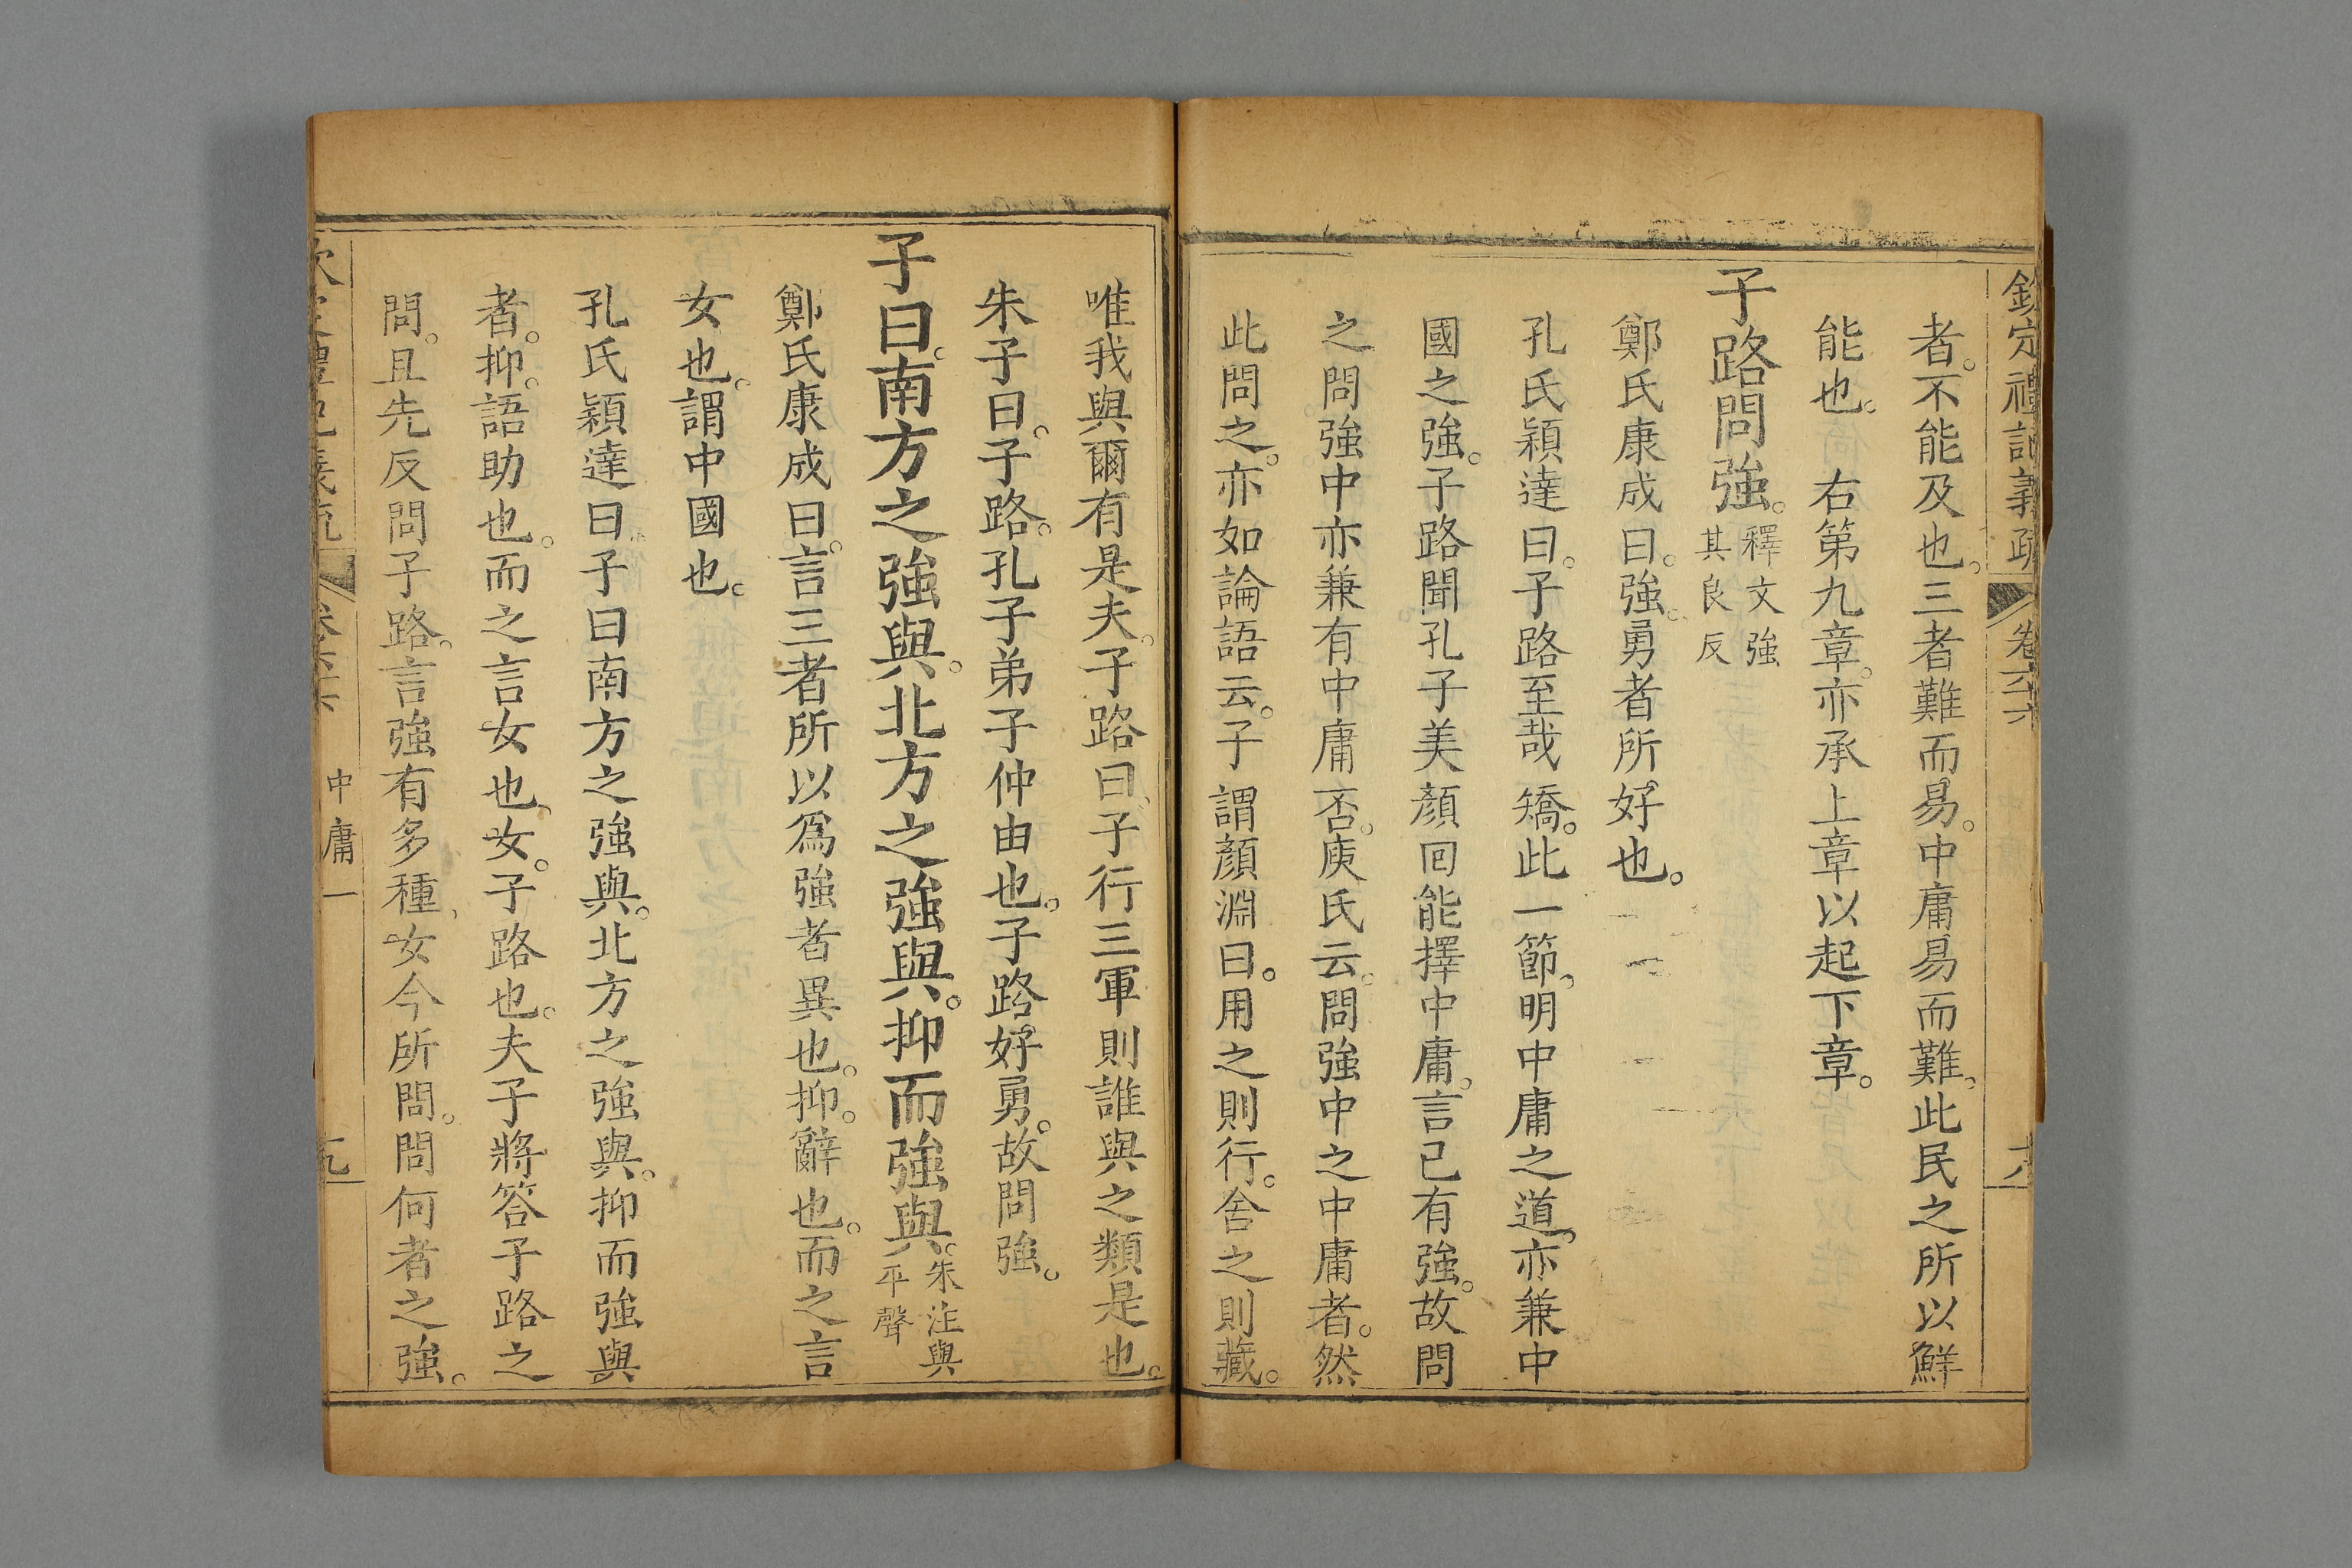 欽定禮記義疏 卷六十六 十八
者。不能及也。三者難而易。中庸易而難。此民之所以鮮
能也。 右第九章。亦承上章以起下章。
子路問強。釋文強
其良反
鄭氏康成曰。強。勇者所好也。
孔氏穎達曰。子路至哉矯。此一節。明中庸之道。亦兼中
國之強。子路聞孔子美顏回能擇中庸。言已有強。故問
之問強中亦兼有中庸否。庾氏云。問強中之中庸者。然
此問之。亦如論語云。子謂顏淵曰。用之則行。舍之則藏。
唯我與爾有是夫。子路曰。子行三軍則誰與之類是也。
朱子曰。子路。孔子弟子仲由也。子路好勇。故問強。
子曰。南方之強與。北方之強與。抑而強與。朱注與
平聲
鄭氏康成曰。言三者所以爲強者異也。抑。辭也。而之言
女也。謂中國也。
孔氏穎達曰。子曰南方之強與。北方之強與。抑而強與
者。抑。語助也。而之言女也。女。子路也。夫子將答子路之
問。且先反問子路。言強有多種。女今所問。問何者之強。
中庸一